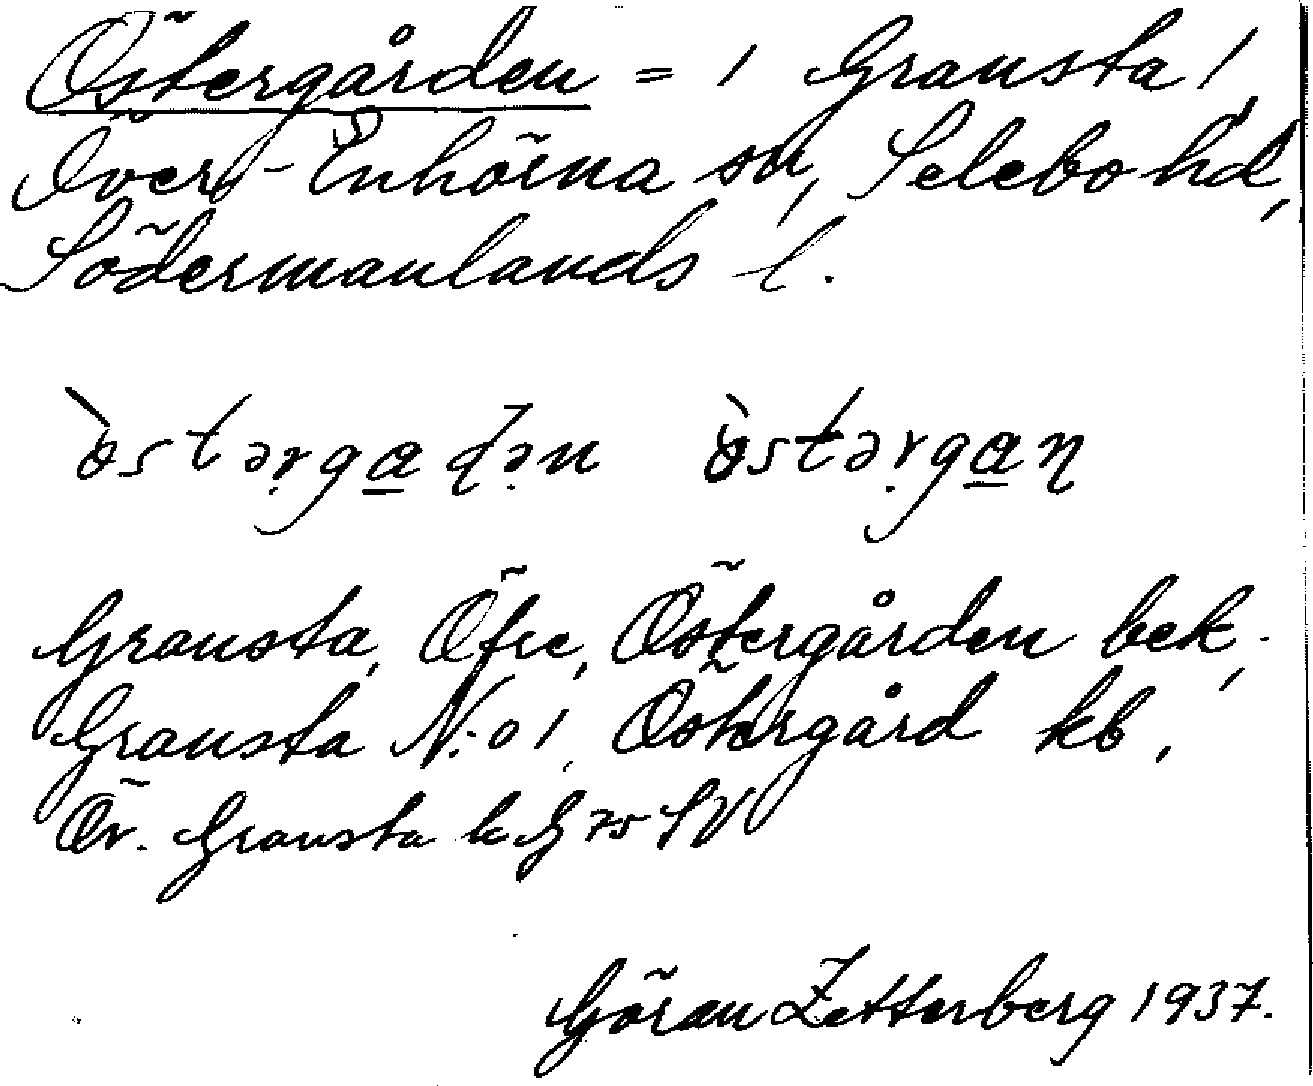 Östergården = 1 Gransta 1,
Över-Enhörna sn, Selebo hd,
Södermanlands l.
òstərgadən òstərgaɳ
Gransta, Öfre, Östergården bek.,
Gransta N:o 1, Östergård kb,
Öv. Gransta k G 75 SV
Göran Zetterberg 1937.